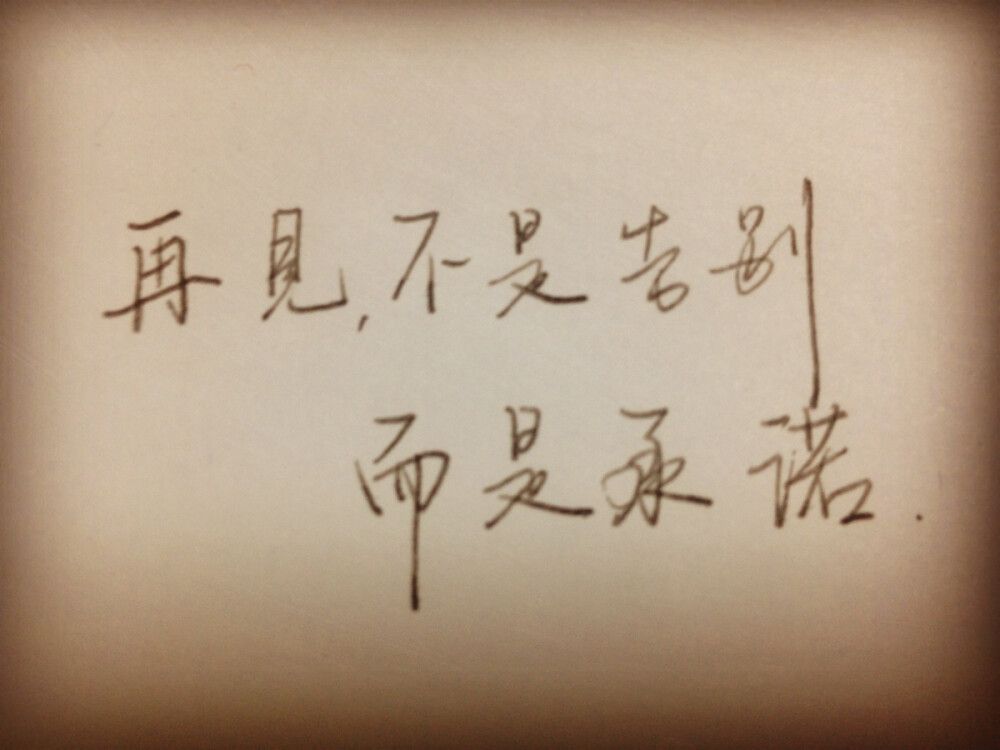 再见,不是告别
而是承诺.